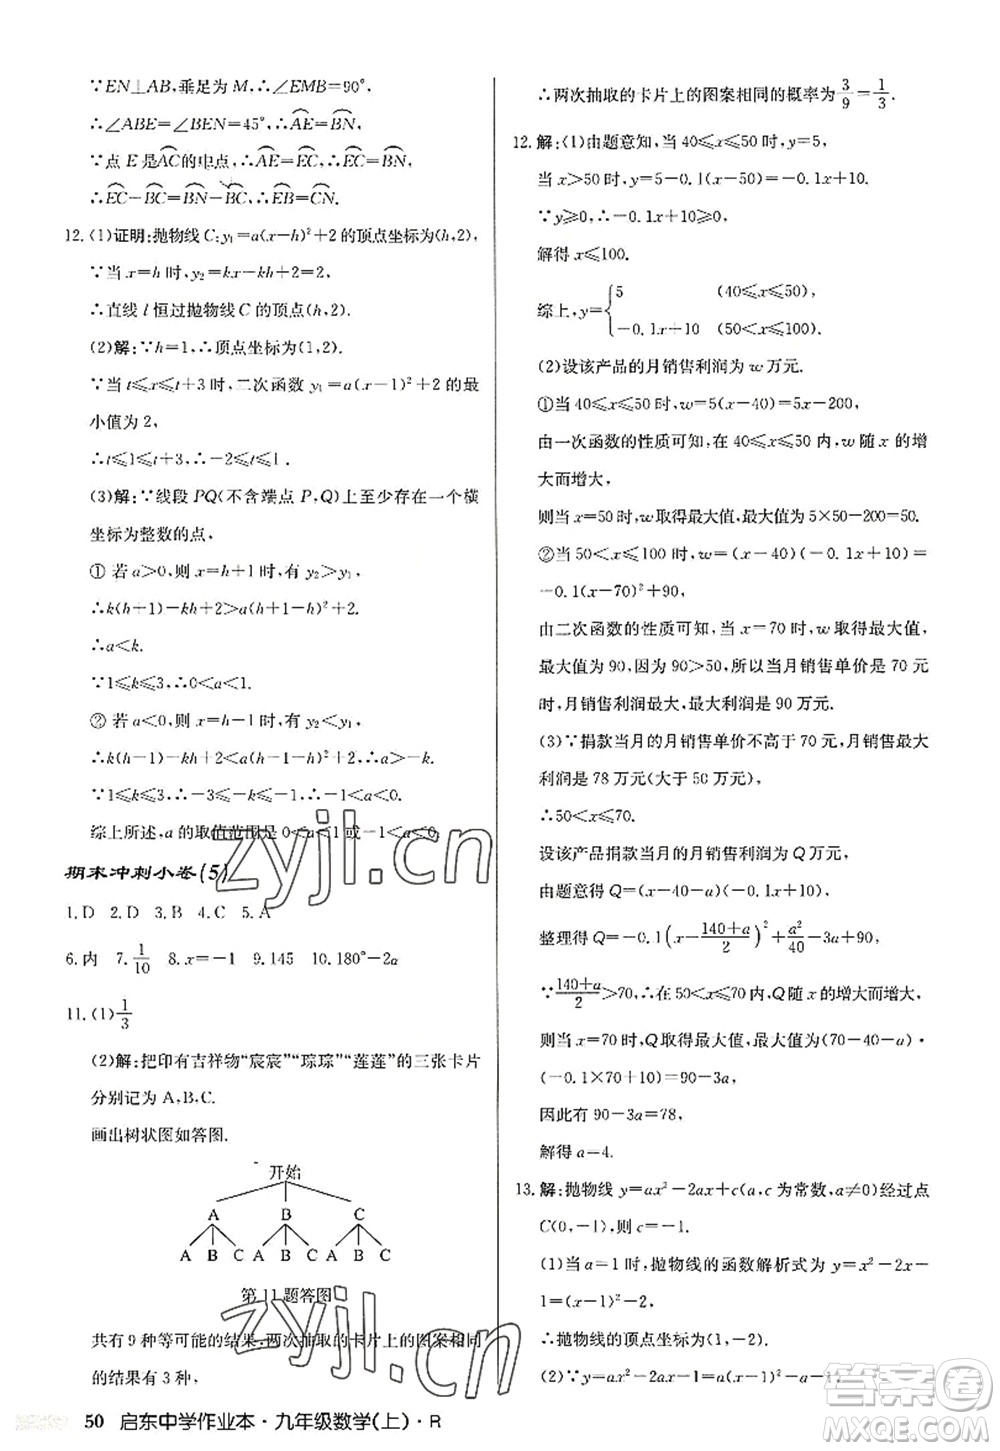 ∵EN⊥AB,垂足为 M,∴∠EMB=90°,
∴∠ABE=∠BEN=45°,∴AE=BN,
∵点 E 是AC的中点,∴AE=EC,∴EC=BN,
∴EC-BC=BN-BC,∴EB=CN.
12.(1)证明:抛物线 C:y₁=a(x-h)²+2 的顶点坐标为(h,2),
∵当 x=h 时,y₂=kx-kh+2=2,
∴直线 l 恒过抛物线 C 的顶点(h,2).
(2)解:∵h=1,∴顶点坐标为(1,2).
∵当 t≤x≤t+3 时,二次函数 y₁=a(x-1)²+2 的最
小值为 2,
∴t≤1≤t+3,∴-2≤t≤1.
(3)解:∵线段 PQ(不含端点 P,Q)上至少存在一个横
坐标为整数的点,
① 若 a>0,则 x=h+1 时,有 y₂>y₁,
∴k(h+1)-kh+2>a(h+1-h)²+2,
∴a<k.
∵1≤k≤3,∴0<a<1.
② 若 a<0,则 x=h-1 时,有 y₂<y₁,
∴k(h-1)-kh+2<a(h-1-h)²+2,∴a>-k.
∵1≤k≤3,∴-3≤-k≤-1,∴-1<a<0.
综上所述,a 的取值范围是 0<a<1 或-1<a<0.
期末冲刺小卷(5)
1.D 2.D 3.B 4.C 5.A
6.内 7.1/10 8.x=-1 9.145 10.180°-2α
11.(1)1/3
(2)解:把印有吉祥物“宸宸”“琮琮”“莲莲”的三张卡片
分别记为 A,B,C.
画出树状图如答图.
开始
A B C
A B C A B C A B C
第 11 题答图
共有 9 种等可能的结果,两次抽取的卡片上的图案相同
的结果有 3 种,
50 启东中学作业本·九年级数学(上)·R
∴两次抽取的卡片上的图案相同的概率为3/9=1/3.
12.解:(1)由题意知,当 40≤x≤50 时,y=5,
当 x>50 时,y=5-0.1(x-50)=-0.1x+10.
∵y≥0,∴-0.1x+10≥0,
解得 x≤100.
综上,y={5 (40≤x≤50),
-0.1x+10 (50<x≤100).
(2)设该产品的月销售利润为 w 万元.
①当 40≤x≤50 时,w=5(x-40)=5x-200,
由一次函数的性质可知,在 40≤x≤50 内,w 随 x 的增
大而增大,
则当 x=50 时,w 取得最大值,最大值为 5×50-200=50.
②当 50<x≤100 时,w=(x-40)(-0.1x+10)=
-0.1(x-70)²+90,
由二次函数的性质可知,当 x=70 时,w 取得最大值,
最大值为 90.因为 90>50,所以当月销售单价是 70 元
时,月销售利润最大,最大利润是 90 万元.
(3)∵捐款当月的月销售单价不高于 70 元,月销售最大
利润是 78 万元(大于 50 万元),
∴50<x≤70,
设该产品捐款当月的月销售利润为 Q 万元,
由题意得 Q=(x-40-a)(-0.1x+10),
整理得 Q=-0.1(x-(140+a)/2)²+a²/40-3a+90,
∵(140+a)/2>70,∴在 50<x≤70 内,Q 随 x 的增大而增大,
则当 x=70 时,Q 取得最大值,最大值为(70-40-a)·
(-0.1×70+10)=90-3a,
因此有 90-3a=78,
解得 a=4.
13.解:抛物线 y=ax²-2ax+c(a,c 为常数,a≠0)经过点
C(0,-1),则 c=-1.
(1)当 a=1 时,抛物线的函数解析式为 y=x²-2x-
1=(x-1)²-2,
∴抛物线的顶点坐标为(1,-2).
(2)∵y=ax²-2ax-1=a(x-1)²-a-1,
zyjl.cn
zyjl.cn
答案圈
MXQE.COM